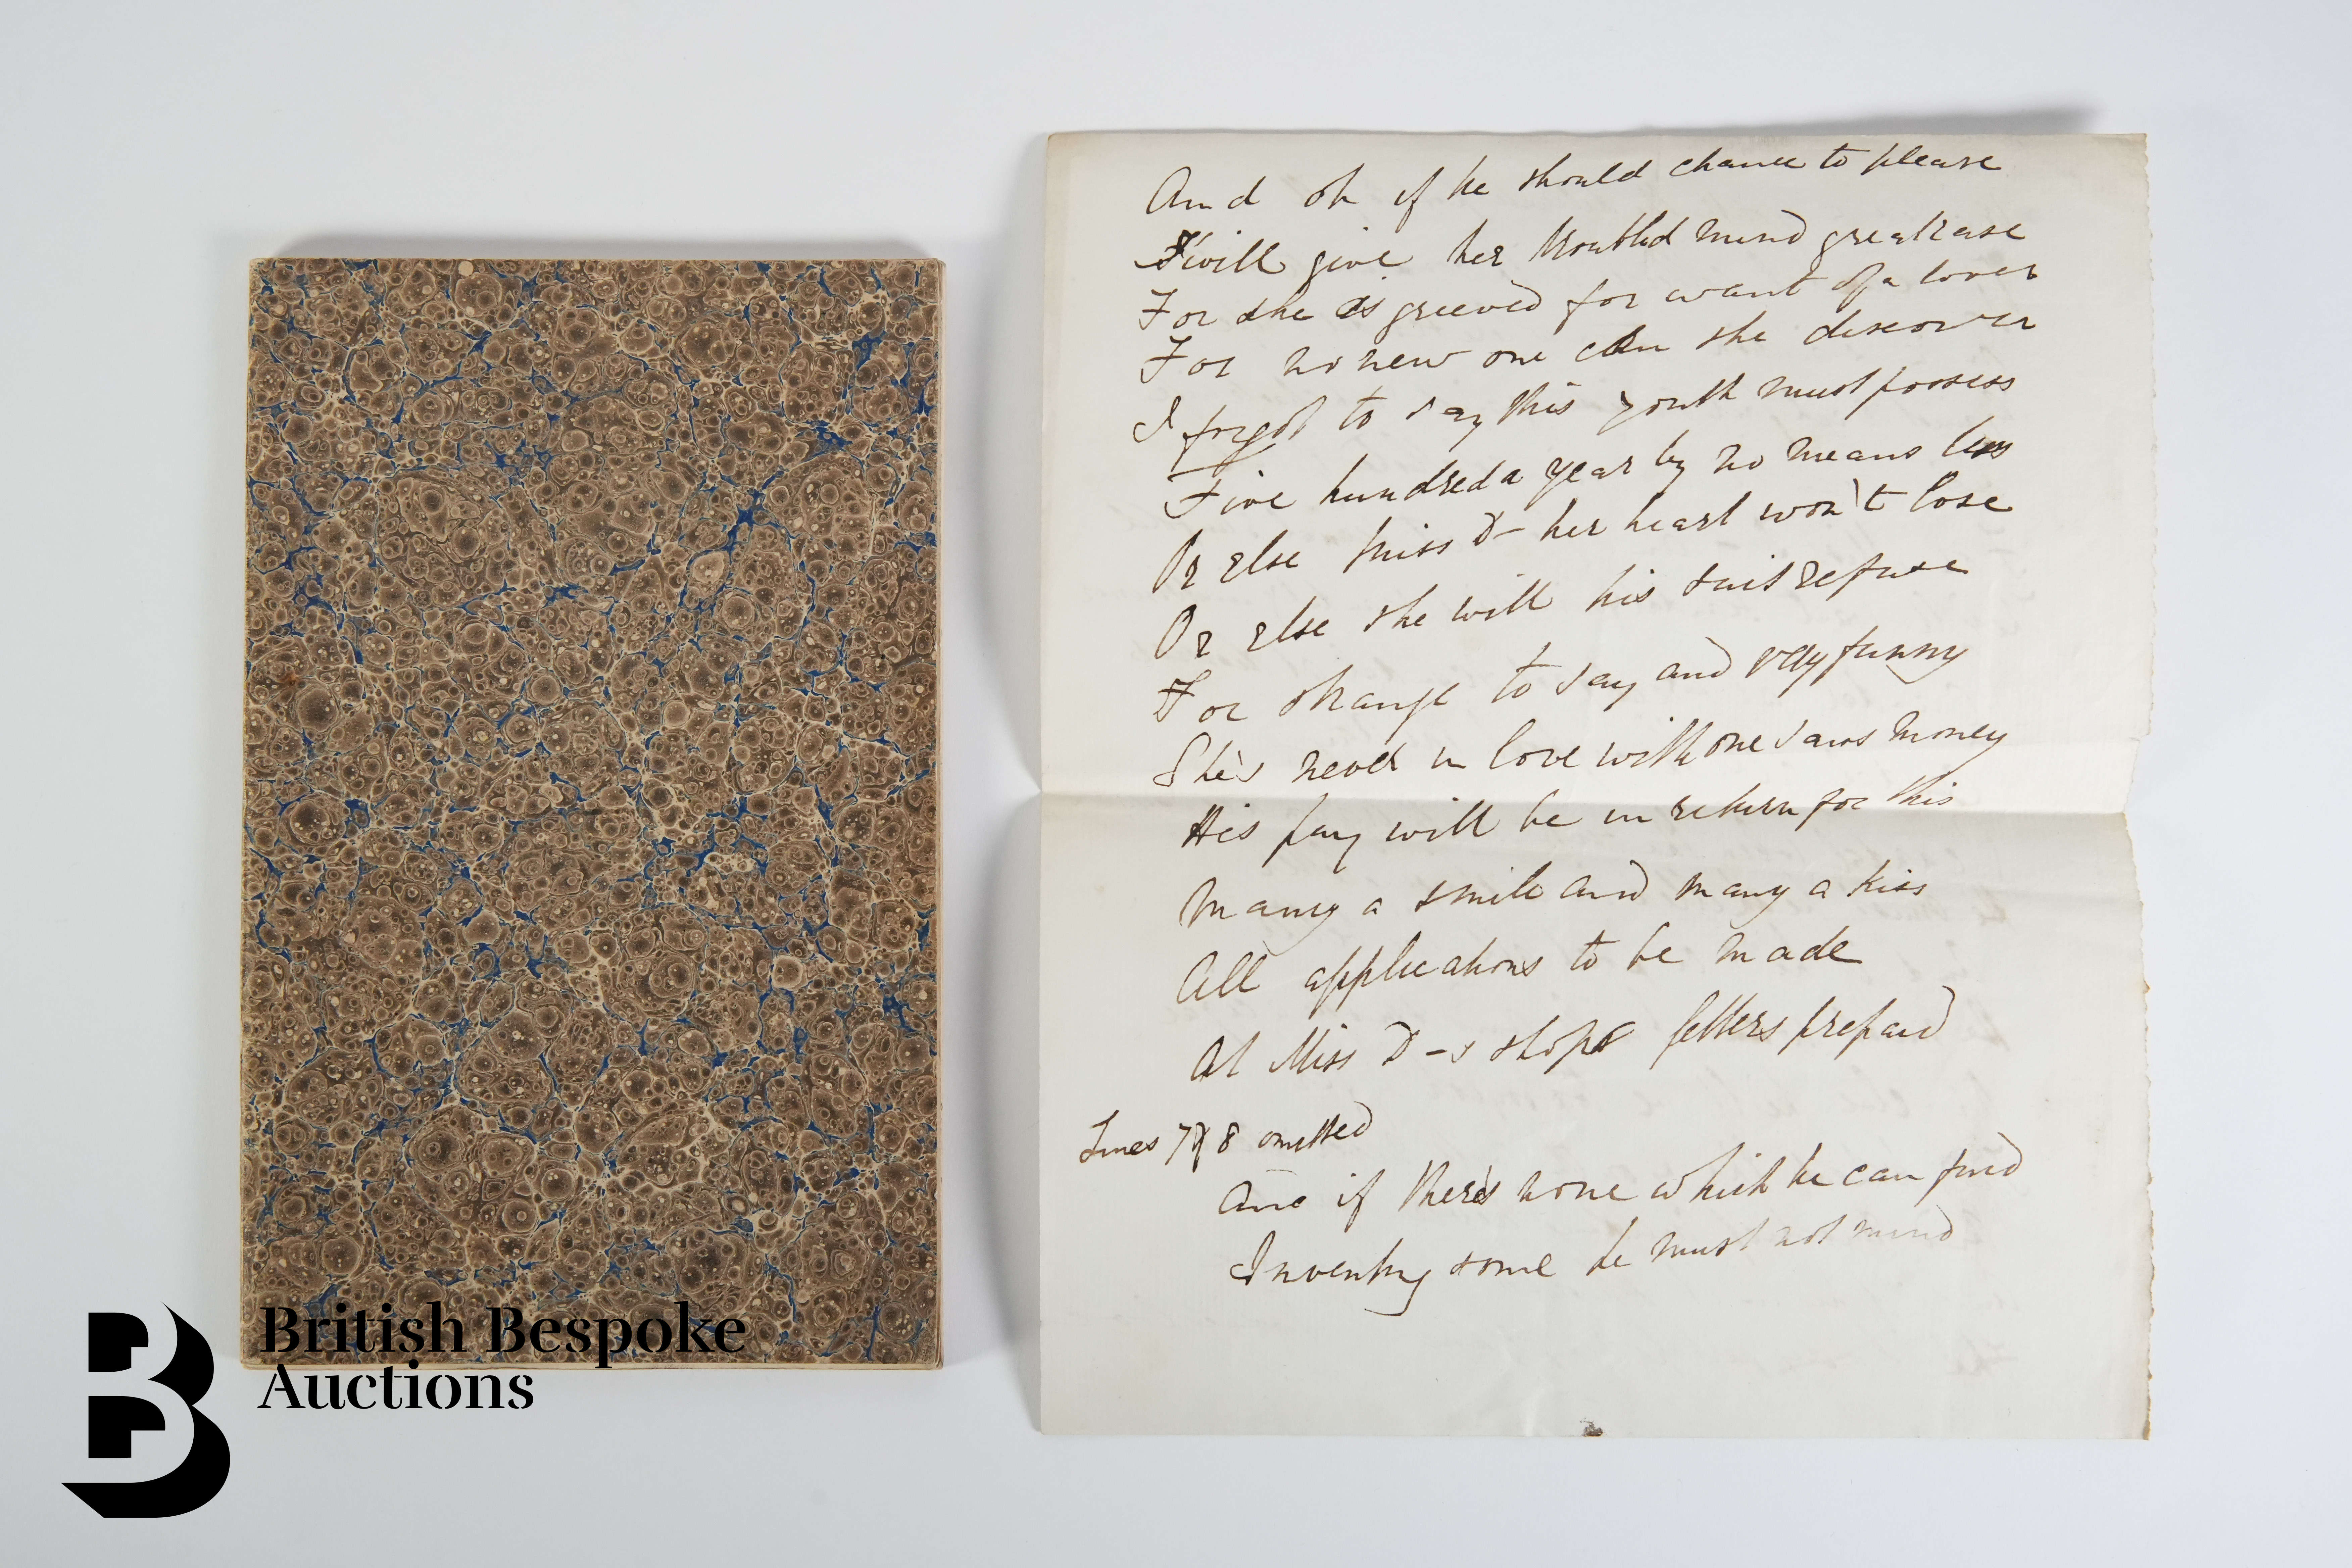 And oh if he should chance to please
T'will give her troubled mind great ease
For she is greeved for want of a lover
For no new one can she discover
I forgot to say this youth must possess
Five hundred a year by no means less
Or else Miss D- her heart won't lose
Or else she will his suit refuse
For strange to say and very funny
She's never in love with one sans money
His pay will be in return for this
Many a smile and many a kiss
All applications to be made
At Miss D-s shop letters prepaid
Lines 7 & 8 omitted
And if there's none which he can find
Inventing some he must not mind
British Bespoke
Auctions